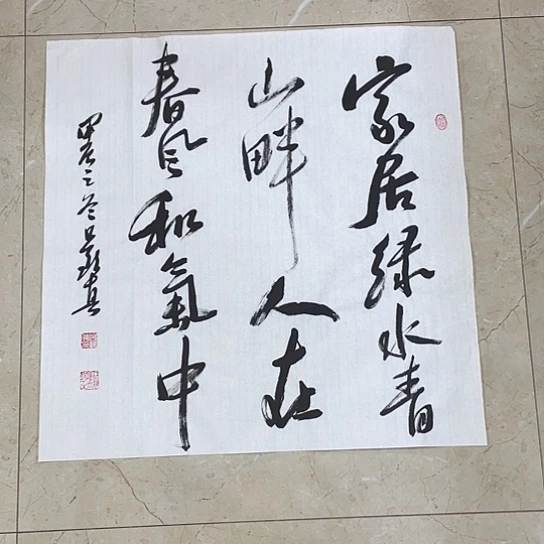 家居绿水青
山畔人在
春风和氣中
甲辰之冬